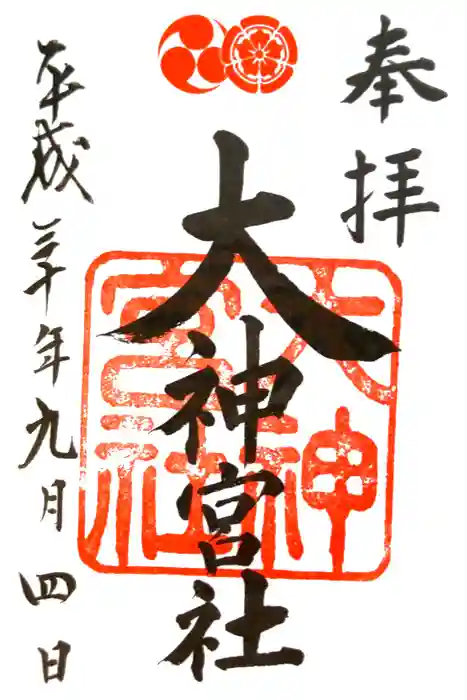 奉拝
大神宮社
大神宮社
平成三十年九月四日